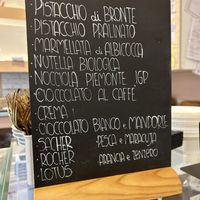 • PISTACCHIO di BRONTE
• PISTACCHIO PRALINATO
• MARMELLATA di ALBICOCCA
• NUTELLA BIOLOGICA
• NOCCIOLA PIEMONTE IGP
• CIOCCOLATO AL CAFFÈ
• CREMA
• CIOCCOLATO BIANCO e MANDORLE
• SACHER PESCA e MARACUJA
• ROCHER ARANCIA e ZENZERO
• LOTUS